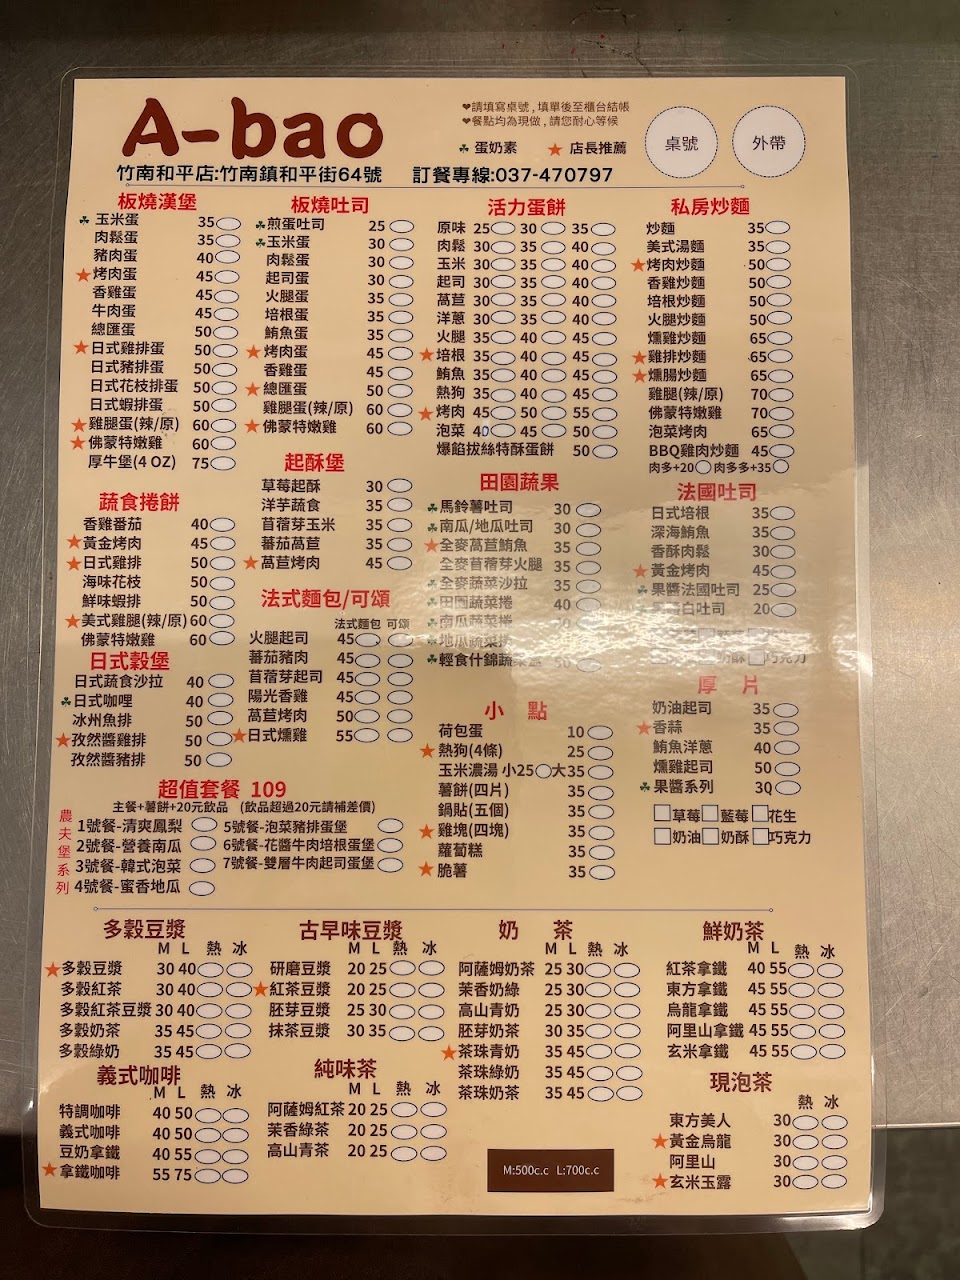 A-bao
❤請填寫桌號 , 填單後至櫃台結帳
❤餐點均為現做 , 請您耐心等候
☘ 蛋奶素 ★ 店長推薦
桌號
外帶
竹南和平店:竹南鎮和平街64號 訂餐專線:037-470797
板燒漢堡
☘ 玉米蛋 35
肉鬆蛋 35
豬肉蛋 40
★烤肉蛋 45
香雞蛋 45
牛肉蛋 45
總匯蛋 50
★日式雞排蛋 50
日式豬排蛋 50
日式花枝排蛋 50
日式蝦排蛋 50
★雞腿蛋(辣/原) 60
★佛蒙特嫩雞 60
厚牛堡(4 OZ) 75
蔬食捲餅
香雞番茄 40
★黃金烤肉 45
★日式雞排 50
海味花枝 50
鮮味蝦排 50
★美式雞腿(辣/原) 60
佛蒙特嫩雞 60
日式穀堡
日式蔬食沙拉 40
☘日式咖哩 40
冰州魚排 50
★孜然醬雞排 50
孜然醬豬排 50
板燒吐司
☘煎蛋吐司 25
☘玉米蛋 30
肉鬆蛋 30
起司蛋 30
火腿蛋 35
培根蛋 35
鮪魚蛋 35
★烤肉蛋 45
香雞蛋 45
★總匯蛋 50
雞腿蛋(辣/原) 60
★佛蒙特嫩雞 60
起酥堡
草莓起酥 30
洋芋蔬食 35
苜蓿芽玉米 35
蕃茄萵苣 35
★萵苣烤肉 45
法式麵包/可頌
法式麵包 可頌
火腿起司 45
蕃茄豬肉 45
苜蓿芽起司 45
陽光香雞 45
萵苣烤肉 50
★日式燻雞 55
活力蛋餅
原味 25 30 35
肉鬆 30 35 40
玉米 30 35 40
起司 30 35 40
萵苣 30 35 40
洋蔥 30 35 40
火腿 35 40 45
★培根 35 40 45
鮪魚 35 40 45
熱狗 35 40 45
★烤肉 45 50 55
泡菜 40 45 50
爆餡拔絲特酥蛋餅 50
田園蔬果
☘馬鈴薯吐司 30
☘南瓜/地瓜吐司 30
★全麥萵苣鮪魚 35
全麥苜蓿芽火腿 35
☘全麥蔬菜沙拉 35
☘田園蔬菜捲 40
☘南瓜蔬菜捲
☘地瓜蔬菜捲
☘輕食什錦蔬
小 點
荷包蛋 10
★熱狗(4條) 25
玉米濃湯 小25 大35
薯餅(四片) 35
鍋貼(五個) 35
★雞塊(四塊) 35
蘿蔔糕 35
★脆薯 35
私房炒麵
炒麵 35
美式湯麵 35
★烤肉炒麵 50
香雞炒麵 50
培根炒麵 50
火腿炒麵 50
燻雞炒麵 65
★雞排炒麵 65
★燻腸炒麵 65
雞腿(辣/原) 70
佛蒙特嫩雞 70
泡菜烤肉 65
BBQ雞肉炒麵 45
肉多+20 肉多多+35
法國吐司
日式培根 35
深海鮪魚 35
香酥肉鬆 30
★黃金烤肉 45
☘果醬法國吐司 25
白吐司 20
奶酥 巧克力
厚 片
奶油起司 35
★香蒜 35
鮪魚洋蔥 40
燻雞起司 50
☘果醬系列 30
草莓 藍莓 花生
奶油 奶酥 巧克力
超值套餐 109
主餐+薯餅+20元飲品 (飲品超過20元請補差價)
農夫堡系列
1號餐-清爽鳳梨
2號餐-營養南瓜
3號餐-韓式泡菜
4號餐-蜜香地瓜
5號餐-泡菜豬排蛋堡
6號餐-花醬牛肉培根蛋堡
7號餐-雙層牛肉起司蛋堡
多穀豆漿
M L 熱 冰
★多穀豆漿 30 40
多穀紅茶 30 40
多穀紅茶豆漿 30 40
多穀奶茶 35 45
多穀綠奶 35 45
義式咖啡
M L 熱 冰
特調咖啡 40 50
義式咖啡 40 50
豆奶拿鐵 40 55
★拿鐵咖啡 55 75
古早味豆漿
M L 熱 冰
研磨豆漿 20 25
★紅茶豆漿 20 25
胚芽豆漿 25 30
抹茶豆漿 30 35
純味茶
M L 熱 冰
阿薩姆紅茶 20 25
茉香綠茶 20 25
高山青茶 20 25
奶 茶
M L 熱 冰
阿薩姆奶茶 25 30
茉香奶綠 25 30
高山青奶 25 30
胚芽奶茶 30 35
★茶珠青奶 35 45
茶珠綠奶 35 45
茶珠奶茶 35 45
M:500c.c L:700c.c
鮮奶茶
M L 熱 冰
紅茶拿鐵 40 55
東方拿鐵 45 55
烏龍拿鐵 45 55
阿里山拿鐵 45 55
玄米拿鐵 45 55
現泡茶
熱 冰
東方美人 30
★黃金烏龍 30
阿里山 30
★玄米玉露 30